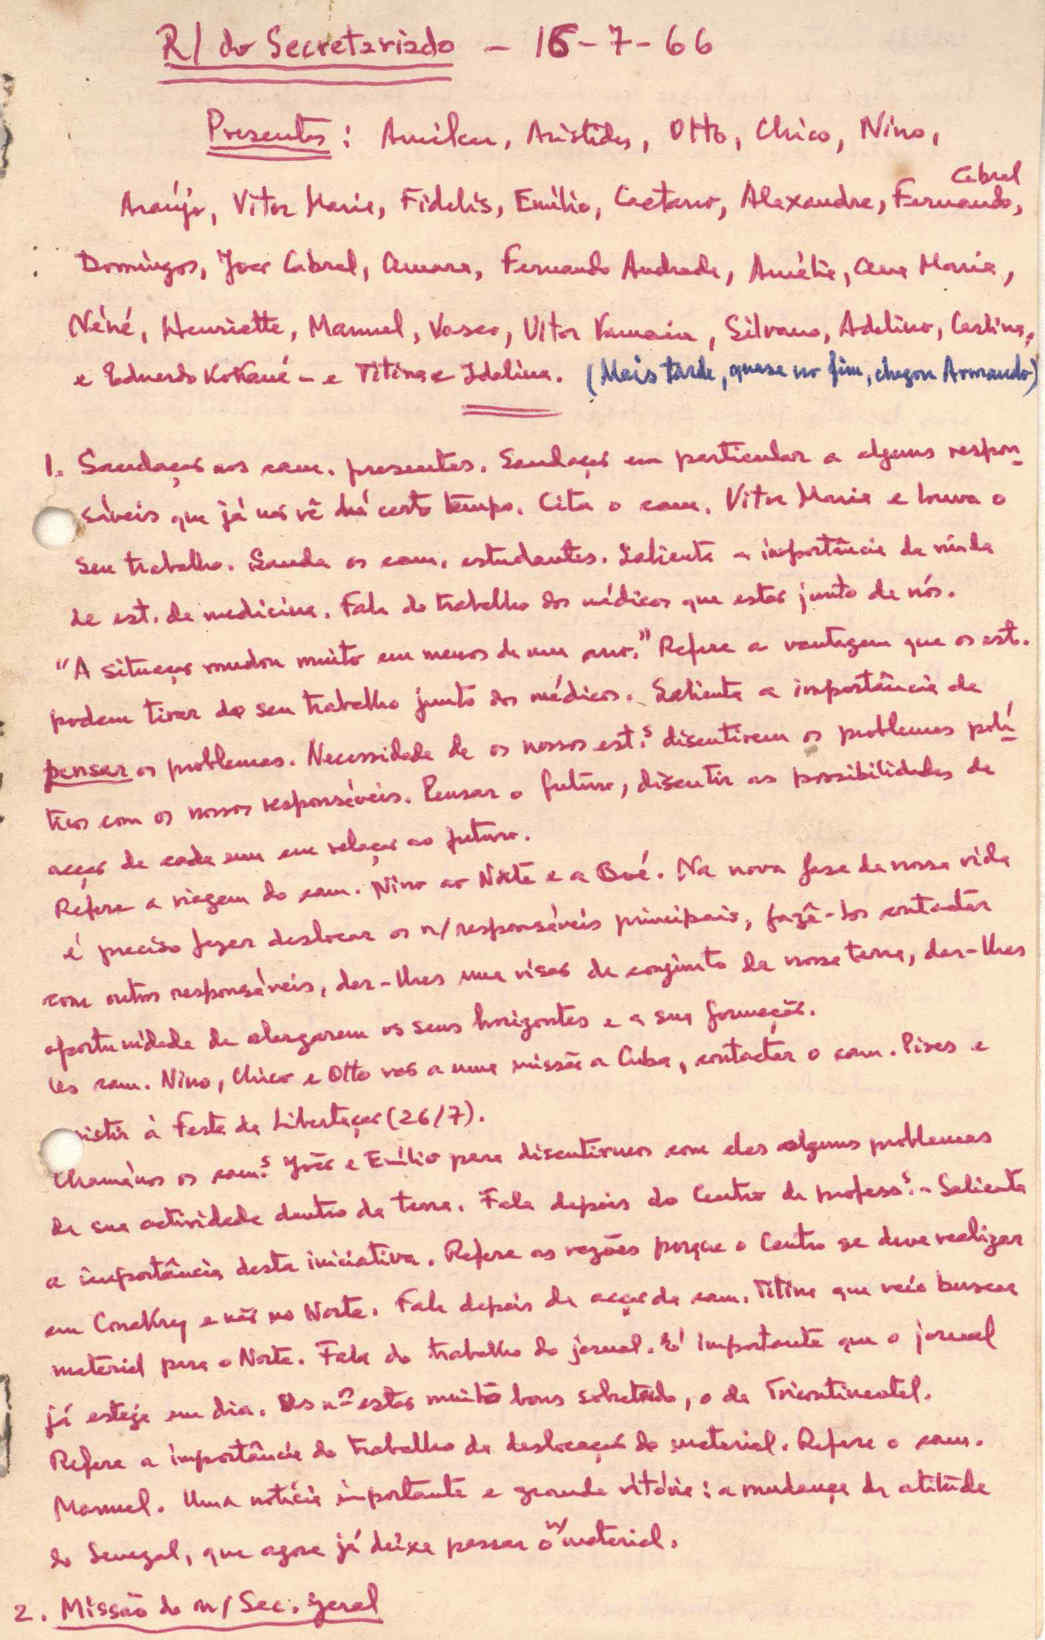 R/ do Secretariado - 15-7-66
Presentes: Amílcar, Aristides, Otto, Chico, Nino,
Araújo, Vitor Maria, Fidelis, Emílio, Caetano, Alexandre, Fernando Cabral,
Domingos, João Cabral, Amara, Fernando Andrade, Amélia, Ana Maria,
Néné, Henriette, Manuel, Vasco, Vitor, Silvano, Adelino, Carlina,
e Eduardo - e Titina e Idelina. (Mais tarde, quase no fim, chegou Armando)
1. Saudação aos cam. presentes. Saudação em particular a alguns respon-
sáveis que já não vê há certo tempo. Cita o cam. Vitor Maria e louva o
seu trabalho. Saúda os cam. estudantes. Salienta a importância da vinda
de est. de medicina. Fala do trabalho dos médicos que estão junto de nós.
"A situação mudou muito em menos de um ano." Refere a vantagem que os est.
podem tirar do seu trabalho junto dos médicos. Salienta a importância de
pensar os problemas. Necessidade de os nossos est.s discutirem os problemas polí-
ticos com os nossos responsáveis. Pensar o futuro, discutir as possibilidades de
acção de cada um em relação ao futuro.
Refere a viagem do cam. Nino ao Norte e a Boé. Na nova fase da nossa vida
é preciso fazer deslocar os n/responsáveis principais, fazê-los contactar
com outros responsáveis, dar-lhes uma visão de conjunto da nossa terra, dar-lhes
oportunidade de alargarem os seus horizontes e a sua formação.
Os cam. Nino, Chico e Otto vão a uma missão a Cuba, contactar o cam. Pires e
assistir à Festa da Libertação (26/7).
Chamámos os cam.s João e Emílio para discutirmos com eles alguns problemas
da sua actividade dentro da terra. Fala depois do Centro de profess.s - Salienta
a importância desta iniciativa. Refere as razões porque o Centro se deve realizar
em Conakry e não no Norte. Fala depois da acção da cam. Titina que veio buscar
material para o Norte. Fala do trabalho do jornal. É importante que o jornal
já esteja em dia. Os nos estão muito bons sobretudo, o da Tricontinental.
Refere a importância do trabalho da deslocação do material. Refere o cam.
Manuel. Uma notícia importante e grande vitória: a mudança da atitude
do Senegal, que agora já deixa passar o n/ material.
2. Missão do n/ Sec. geral